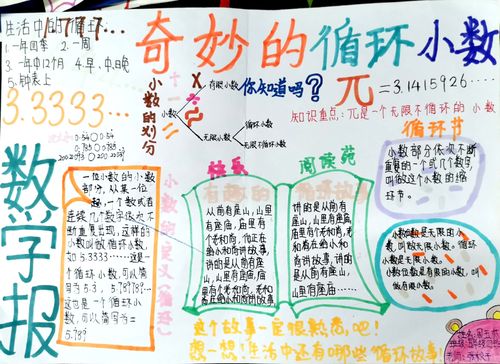 生活中的循环
1.7777…
1.一年四季 2.一周
3.一年中12个月 4.早、中、日晚
5.钟表上
奇妙的循环小数
3.3333…
小数的划分
小数
有限小数
无限小数
循环小数
无限不循环小数
你知道吗?
π=3.1415926····
知识重点:π是一个无限不循环的小数
循环节
小数部分依次不断
重复的一个或几个数字,
叫做这个小数的循
环节。
数学报
一位小数的小数
部分,从某一位
起,一个数或者
连续几个数字依次不
断重复出现,这样的
小数叫做循环小数。
如5.3333……这是
个循环小数,可以简
写为5.3
这也是一个循环小
数,可以简写为
小数的意义(循环)
快乐
阅读苑
有趣的
循环故事
从前有座山,山里
有座庙,庙里有
个老和尚,他正在
给小和尚讲故事,
讲的是从前有座
山,山里有座庙,庙
里有个老和尚,老和
尚在给小和尚讲故事
讲的是从前有座
山,山里有座庙,
庙里有个老和尚,老和
尚在给小和尚讲故事,
讲的是从前有座山,
山里有座庙……
小数位数是无限的小
数,叫做无限小数。循环
小数是无限小数。
小数位数是有限的小数,叫
做有限小数。
这个故事一定很熟悉吧!
想一想!生活中还有哪些循环故事!